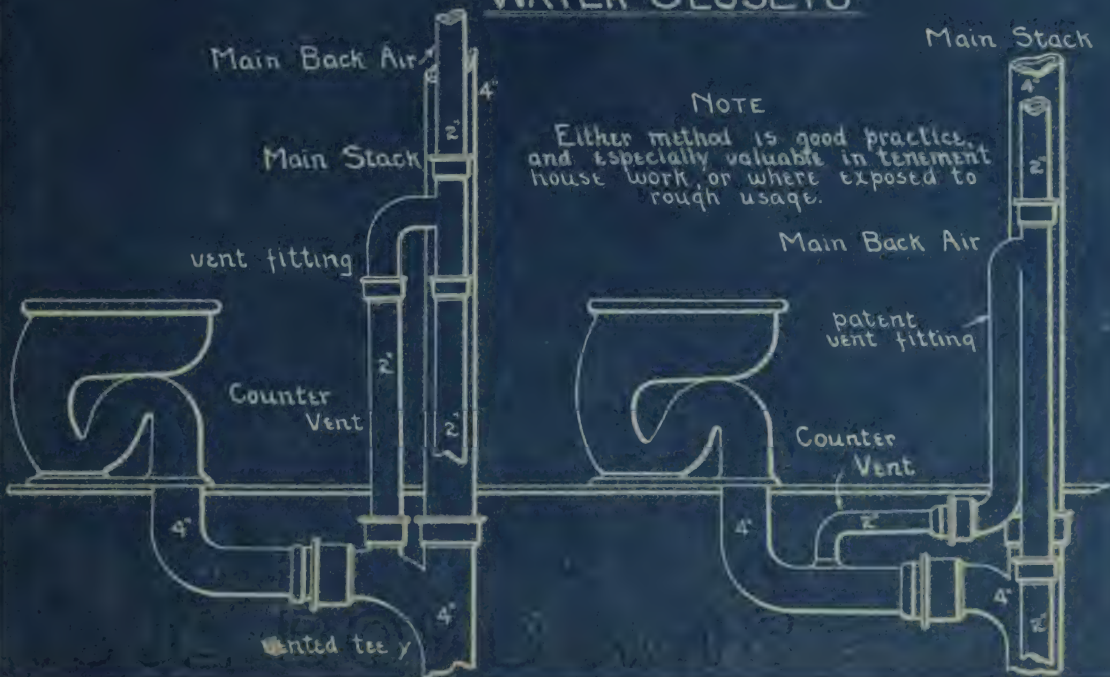 WATER CLOSETS
Main Back Air
4"
2"
Main Stack
vent fitting
2"
Counter
Vent
2"
4"
4"
vented tee y
NOTE
Either method is good practice,
and especially valuable in tenement
house work, or where exposed to
rough usage.
Main Stack
4"
2"
Main Back Air
patent
vent fitting
Counter
Vent
2"
4"
4"
2"